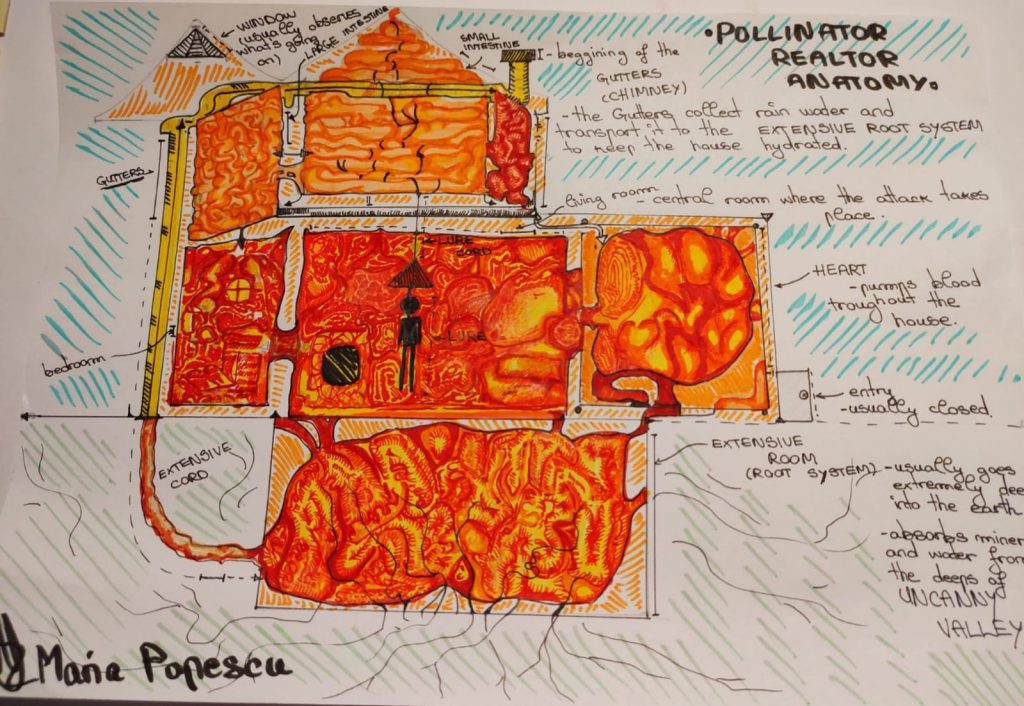 •POLLINATOR
REALTOR
ANATOMY.
WINDOW
(usually observes
what's going
on)
LARGE INTESTINE
SMALL
INTESTINE
I- beggining of the
GUTTERS
(CHIMNEY)
-the Gutters collect rain water and
transport it to the EXTENSIVE ROOT SYSTEM
to keep the house hydrated.
GUTTERS
living room - central room where the attack takes
place.
LURE
CORD
HEART
-pumps blood
troughout the
house.
LURE
bedroom
entry
-usually closed.
EXTENSIVE
CORD
EXTENSIVE
ROOM
(ROOT SYSTEM)
-usually goes
extremely dee
into the earth
-absorbs miner
and water from
the deeps of
UNCANNY
VALLEY
Maria Popescu